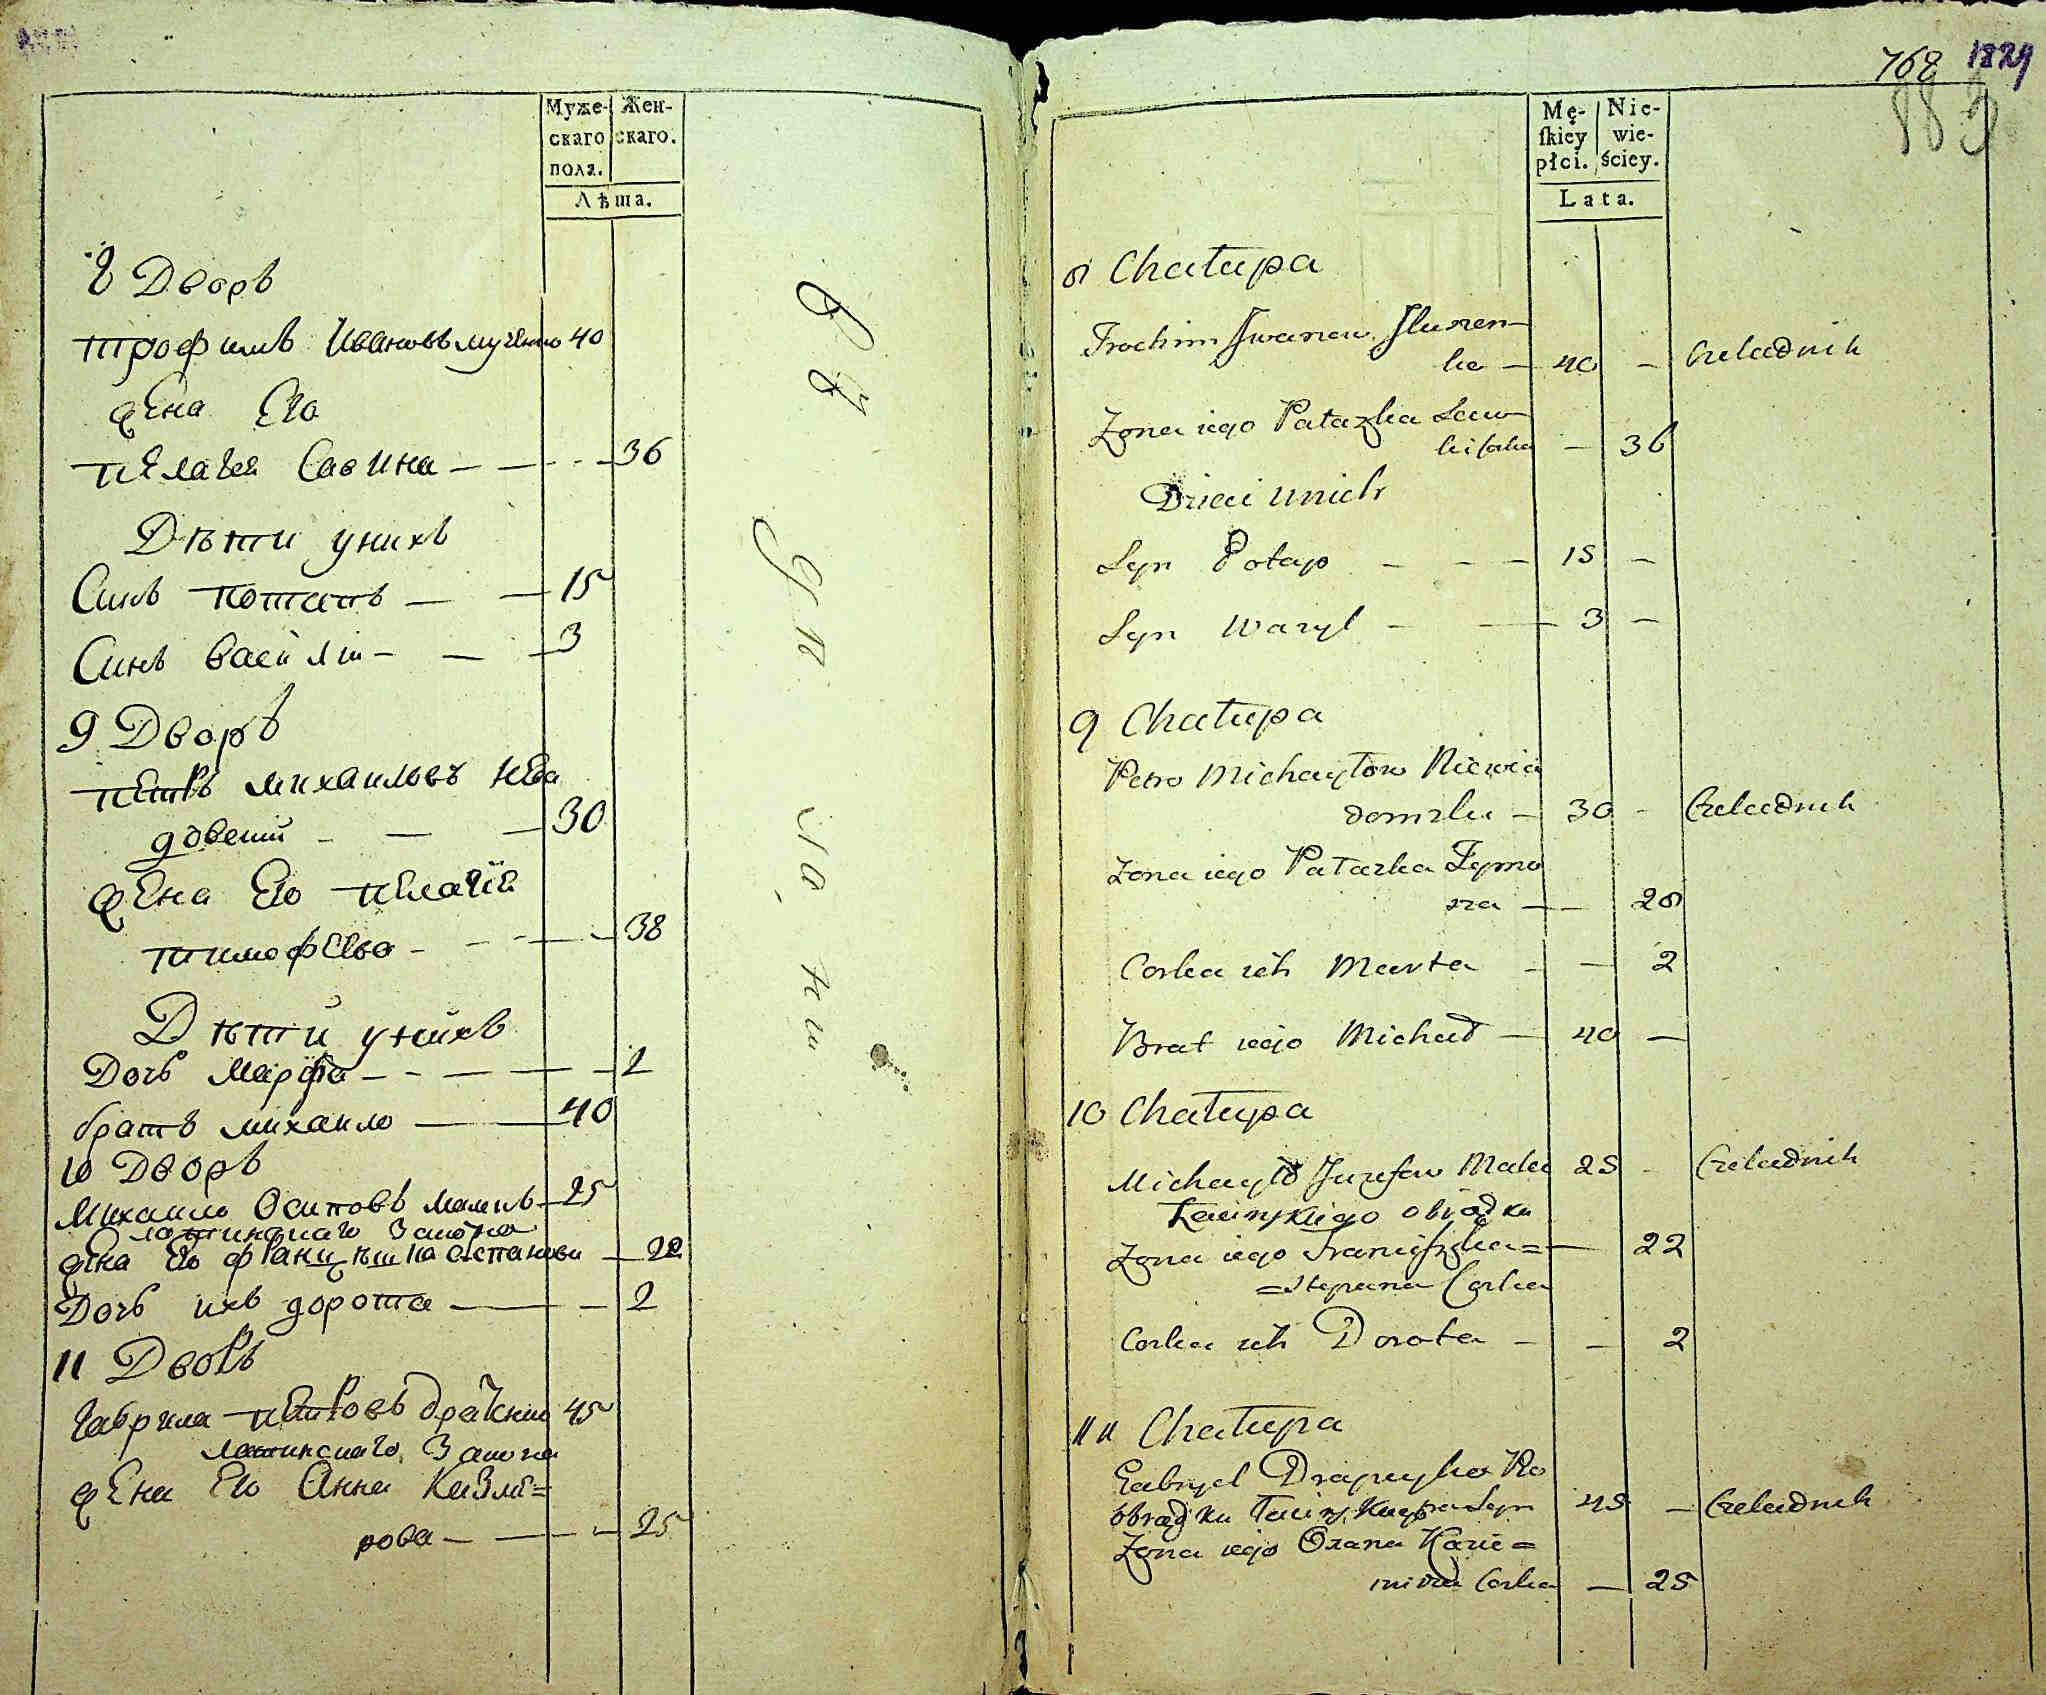 Муже-
скаго
пола.
Жен-
скаго.
Лѣта.
8 Дворъ
трофимъ Ивановъ 40
жена Его
пелагея Савина — — - - 36
Дѣти унихъ
Синъ потапъ — — 15
Синъ василій — — 3
9 Дворъ
петръ михаиловъ нева
довский — — — 30
жена Его пелагія
тимофеева - - - — — 38
Дѣти унихъ
Дочь марфа — - - — — — 2
братъ михаило — — 40
10 Дворъ
Михаило Осиповъ 25
латинскаго Закона
жена Его — 22
Дочь ихъ дорота — — 2
11 Дворъ
гаврила петровъ 45
латинскаго Закона
жена Его Анна Казме=
рова — — — 25
768 1824
883
Mę-
skiey
płci.
Nie-
wie-
ściey.
Lata.
8 Chałupa
Trochim Iwanow
ka — 40 — Czeladnik
Zona iego Pałazka Saw
— 36
Dzieci unich
Syn Potap - - — 15 —
Syn Wasyl - — 3 —
9 Chałupa
Petro Michayłow Niewia
domski — 30 - Czeladnik
Zona iego Pałazka Tymo
— — 28
Corka ich Marta - — 2
Brat iego Michał — 40 —
10 Chałupa
Michayło Juzefow 25 - Czeladnik
Łacinskiego obrządku
Zona iego Franciszka = — 22
= Stepana Corka
Corka ich Dorota - — 2
11 Chałupa
Gabryel
obrządku Łacinskiego Syn 45 — Czeladnik
Zona iego Kazie=
mira Corka — 25